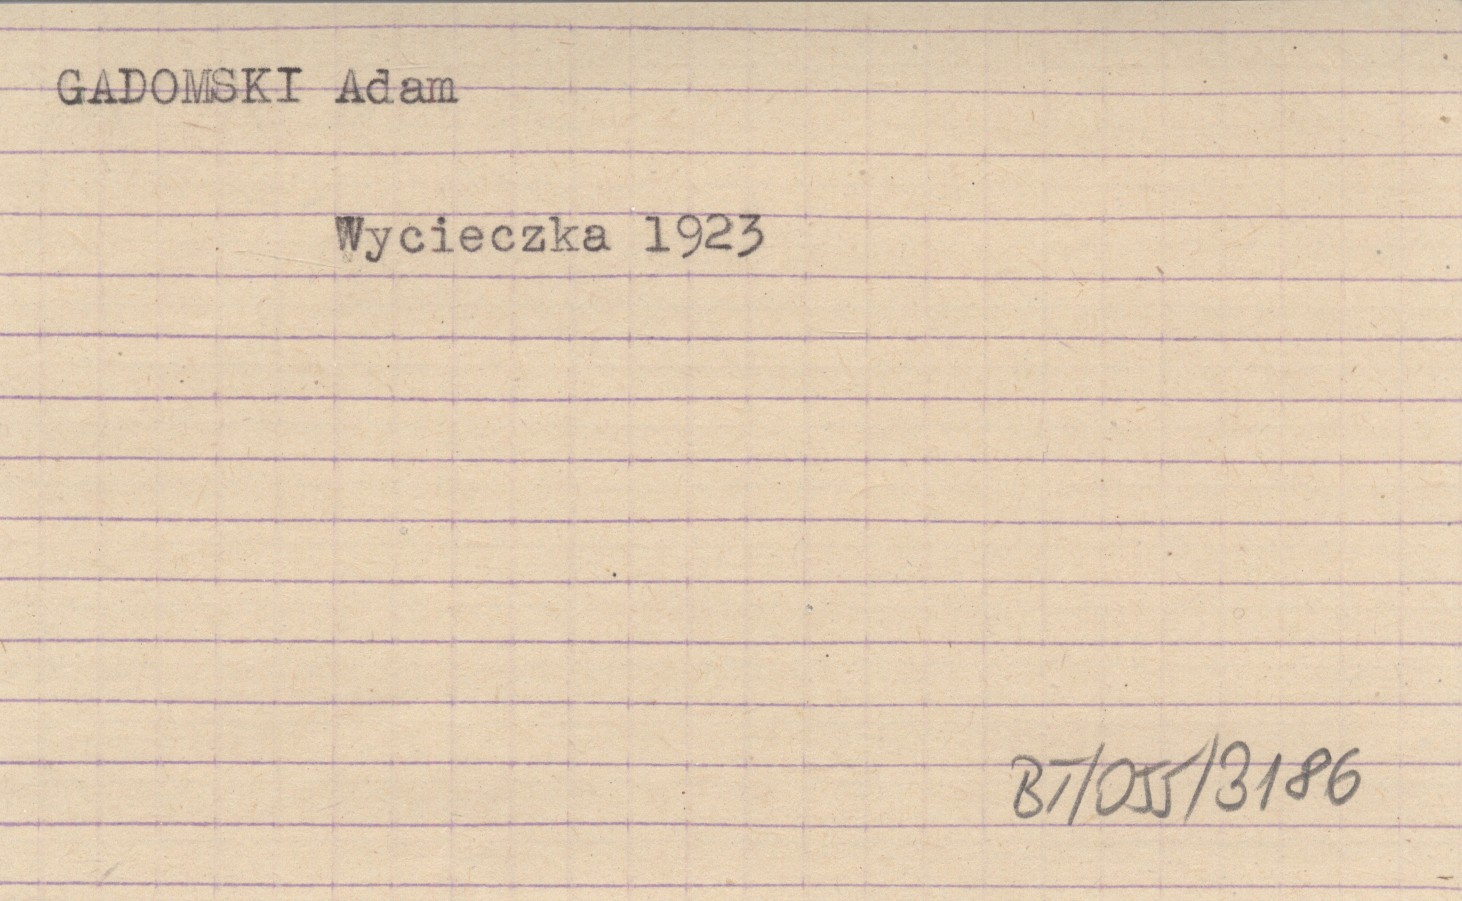 GADOMSKI Adam
Wycieczka 1923
BT/055/3186